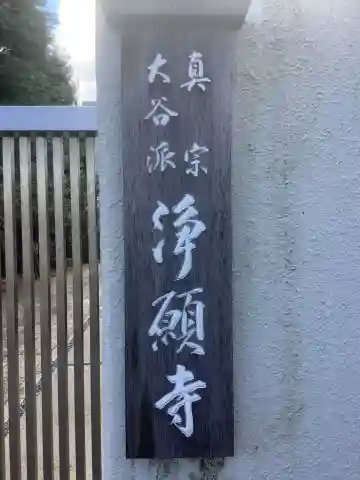 真宗
大谷派
浄願寺